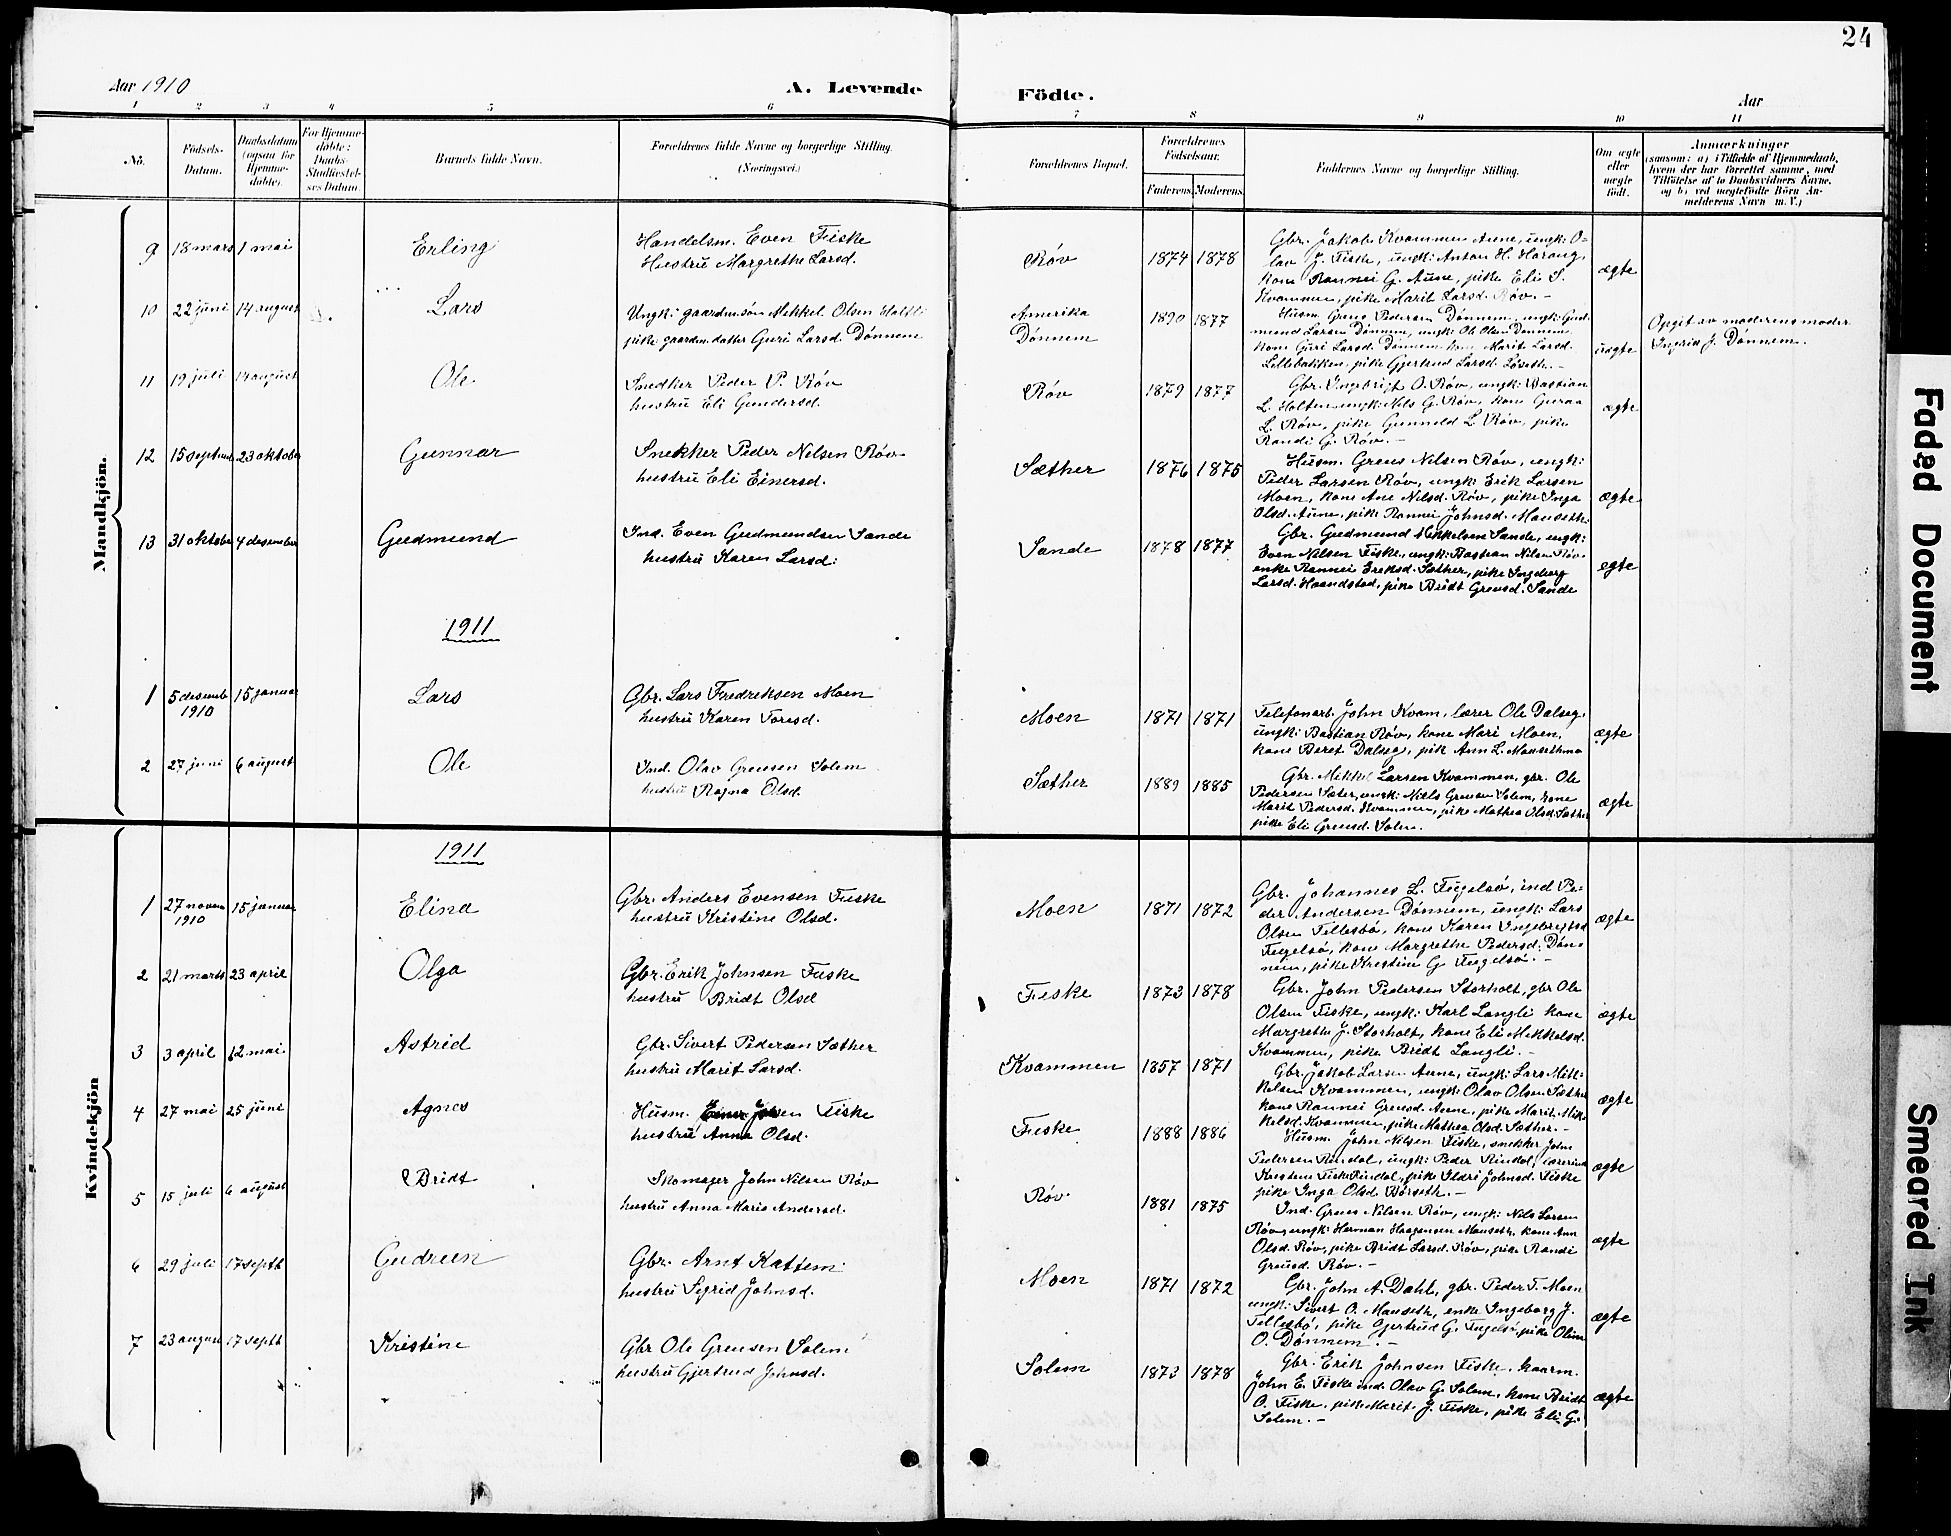 24
Aar 1910
A. Levende
Födte.
Aar
1 2 3 4 5 6 7 8 9 10 11
No.
Födsels-
Datum.
Daabsdatum
(ogsaa for
Hjemme-
døbte).
For Hjemme-
døbte:
Daabs-
Stadfæstel-
ses Datum.
Barnets fulde Navn.
Forældrenes fulde Navne og borgerlige Stilling.
(Næringsvei.)
Forældrenes Bopæl.
Forældrenes
Fødselsaar.
Faderens Moderens
Faddernes Navne og borgerlige Stilling.
Om ægte
eller
uægte
födt.
Anmærkninger
(saasom: a) i Tilfælde af Hjemmedaab,
hvem der har forrettet samme, med
Tilföielse af to Daabsvidners Navne,
og b) ved uegtefödte Börn An-
melderens Navn m. V.)
Mandkjön.
9 18 mars 1 mai Erling
Handelsm. Even Fiske
Hustru Margrethe Larsd.
Røv 1874 1878
Gbr. Jakob Kvammen Aune, ungk: O-
lav J. Fiske, ungk: Anton H. Harang,
kone Rannei G. Aune, pike Eli S.
Kvammen, pike Marit Larsd. Røv. -
ægte
10 22 juni 14 august Lars
Ungk: gaardm.søn Mikkel Olsen
pike gaardm.datter Guri Larsd. Dønnem
Amerika
Dønnem
1890 1877
Husm. Greus Pedersen Dønnem, ungk: Gud-
mund Larsen Dønnem, ungk: Ole Olsen Dønnem
kone Guri Larsd. Dønnem, kone Marit Larsd.
Lillebakken, pike Gjertrud Larsd. Løseth. -
uægte
Opgit av moderens moder
Ingrid J. Dønnem.
11 19 juli 14 august Ole
Snedker Peder P. Røv
hustru Eli Gundersd.
Røv 1879 1877
Gbr. Ingebrigt O. Røv, ungk: Bastian
L. Holten, ungk: Nils G. Røv, kone Guraa
L. Røv, pike Gunnild L. Røv, pike
Randi G. Røv. -
ægte
12 15 septemb 23 oktober Gunnar
Snekker Peder Nilsen Røv
hustru Eli Einersd.
Sæther 1876 1875
Husm. Greus Nilsen Røv, ungk:
Peder Larsen Røv, ungk: Erik Larsen
Moen, kone Ane Nilsd. Røv, pike Inga
Olsd. Aune, pike Rannei Johnsd. Mauseth.
ægte
13 31 oktober 4 desember Gudmund
Ind. Even Gudmundsen Sande
hustru Karen Larsd:
Sande 1878 1877
Gbr. Gudmund Mikkelsen Sande, ungk:
Even Nilsen Fiske, ungk: Bastian Nilsen Røv
enke Rannei Ereksd. Sæther, pike Ingeborg
Larsd. Haandstad, pike Bridt Greusd. Sande
egte
1911
1 5 desemb 15 januar Lars
1910
Gbr. Lars Fredriksen Moen
hustru Karen Toresd.
Moen 1871 1871
Telefonarb. John Kvam, lærer Ole Dalseg,
ungk: Bastian Røv, kone Mari Moen,
kone Beret Dalseg, pik Ann L. Mausethmo
ægte
2 27 juni 6 august Ole
Ind. Olav Greusen Solem
hustru Ragna Olsd.
Sæther 1889 1885
Gbr. Mikkel Larsen Kvammen, gbr. Ole
Pedersen Sæter, ungk: Niels Greusen Solem, kone
Marit Pedersd. Kvammen, pike Mathea Olsd. Sæther
pike Eli Greusd. Solem.
ægte
Kvindekjön
1911
1 27 novem 15 januar Elina
1910
Gbr. Anders Evensen Fuske
hustru Kristine Olsd.
Moen 1871 1872
Gbr. Johannes L. Fugelsø, ind Pe-
der Andersen Dønnem, ungk: Lars
Olsen Tellesbø, kone Karen Ingebrigtsd
Fugelsø, kone Margrethe Pedersd. Døn-
nem, pike Kristine G. Fugelsø. -
ægte
2 21 marts 23 april Olga
Gbr. Erik Johnsen Fiske
hustru Bridt Olsd
Feske 1873 1878
Gbr. John Pedersen Storholt, gbr Ole
Olsen Fiske, ungk: Karl Langli kone
Margrethe J. Storholt, kone Eli Mikkelsd.
Kvammen, pike Bridt Langli. -
ægte
3 3 april 12 mai Astrid
Gbr. Sivert Pedersen Sæther
hustru Marit Larsd.
Kvammen 1857 1871
Gbr. Jakob Larsen Aune, ungk: Lars Mik-
kelsen Kvammen, ungk: Olav Olsen Sæther
kone Rannei Greusd. Aune, pike Marit Mik-
kelsd. Kvammen, pike Mathea Olsd. Sæther. -
ægte
4 27 mai 25 juni Agnes
Husm. Fiske
hustru Anna Olsd.
Feske 1888 1886
Husm. John Nilsen Fiske, snekker John
Pedersen Rindal, ungk: Peder Rindal, lærerinde
Kirsten Fiske Rindal, pike Ildri Johnsd. Fiske
pike Inga Olsd. Børseth. -
ægte
5 15 juli 6 august Bridt
Skomager John Nilsen Røv
hustru Anna Maria Andersd.
Røv 1881 1875
Ind. Greus Nilsen Røv, ungk: Nils Larsen
Røv, ungk: Herman Haagensen Mauseth, kone Ann
Olsd. Røv, pike Bridt Larsd. Røv, pike Randi
Greusd. Røv. -
ægte
6 29 juli 17 septb Gudrun
Gbr. Arnt Kattem
hustru Sigrid Johnsd.
Moen 1871 1872
Gbr. John A. Dahl, gbr. Peder T. Moen
ungk: Sivert O. Mauseth, enke Ingeborg J.
Tellesbø, pike Gjertrud G. Fugelsø, pike Olina
O. Dønnem. -
ægte
7 23 august 17 septb Kristine
Gbr Ole Greusen Solem
hustru Gjertrud Johnsd.
Solem 1873 1878
Gbr. Erik Johnsen Fiske, kaarm.
John E. Fiske ind. Olav G. Solem, kone Bridt
O. Fiske, pike Marit J. Fiske, pike Eli G.
Solem. -
ægte
Faded Document
Smeared Ink